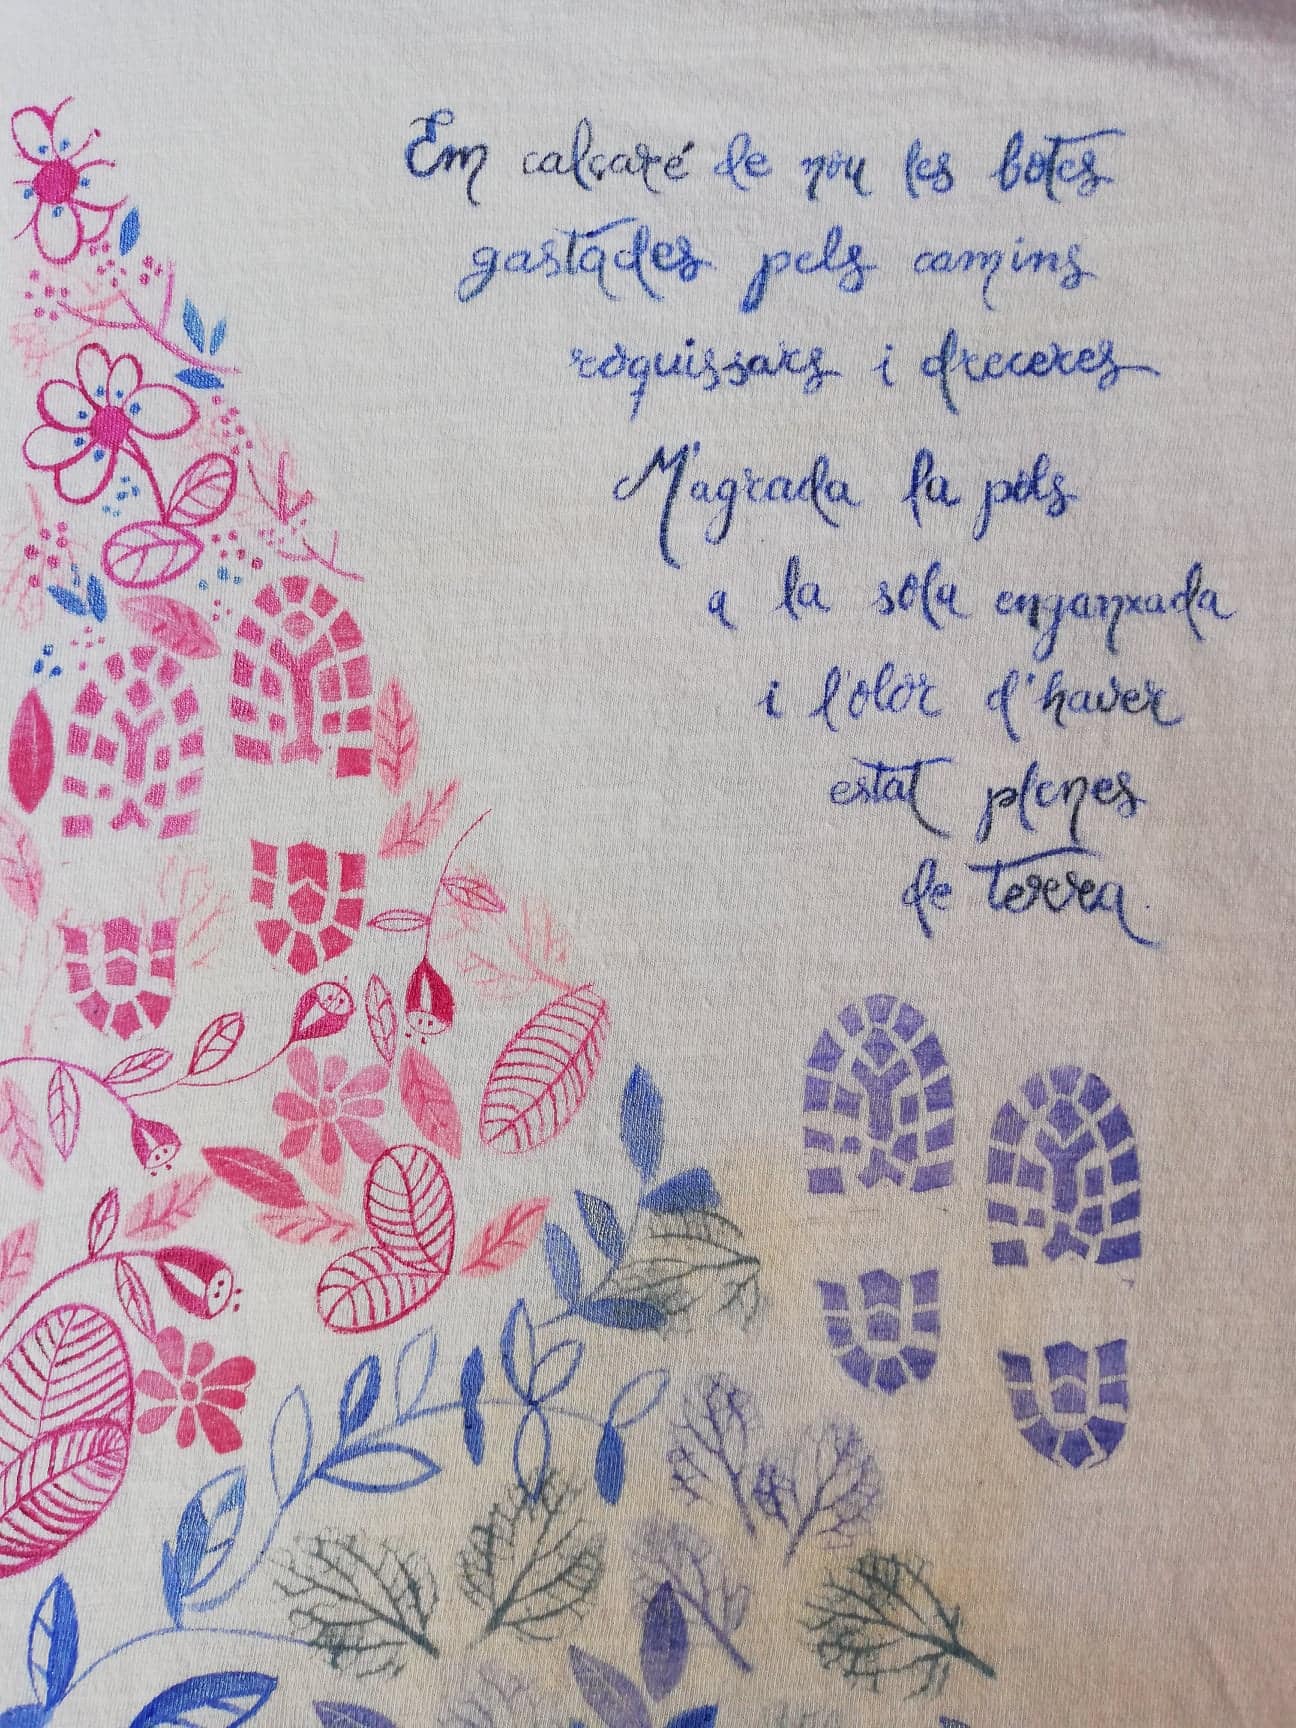 Em calçaré de nou les botes
gastades pels camins
roquissars i dreceres
M'agrada la pols
a la sola enganxada
i l'olor d'haver
estat plenes
de terra.